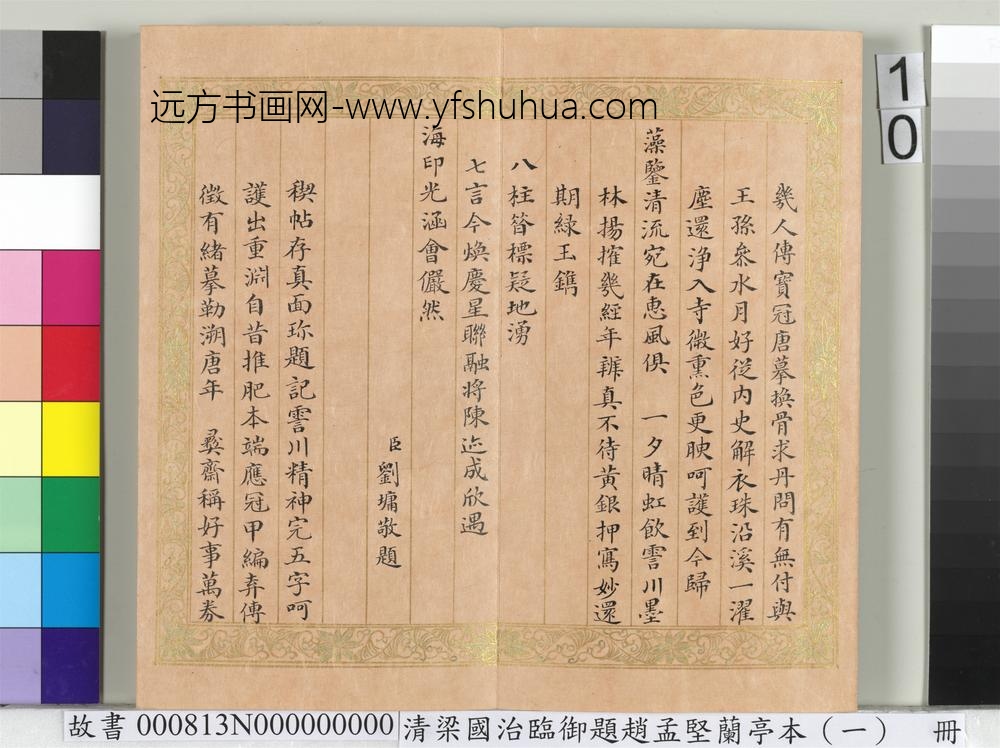 远方书画网-www.yfshuhua.com
10
幾人傳寶冠唐摹換骨求丹問有無付與
王孫叅水月好從內史解衣珠沿溪一濯
塵還淨入寺微熏色更映呵護到今歸
藻鑒清流宛在惠風俱 一夕晴虹飲霅川墨
林揚搉幾經年辨真不待黃銀押寫妙還
期綠玉鐫
八柱簪標疑地湧
七言今煥慶星聯融將陳迹成欣遇
海印光涵會儼然
臣劉墉敬題
稧帖存真面珎題記霅川精神完五字呵
護出重淵自昔推肥本端應冠甲編弆傳
徵有緒摹勒溯唐年 彝齋稱好事萬券
故書 000813N000000000 清梁國治臨御題趙孟堅蘭亭本（一） 冊